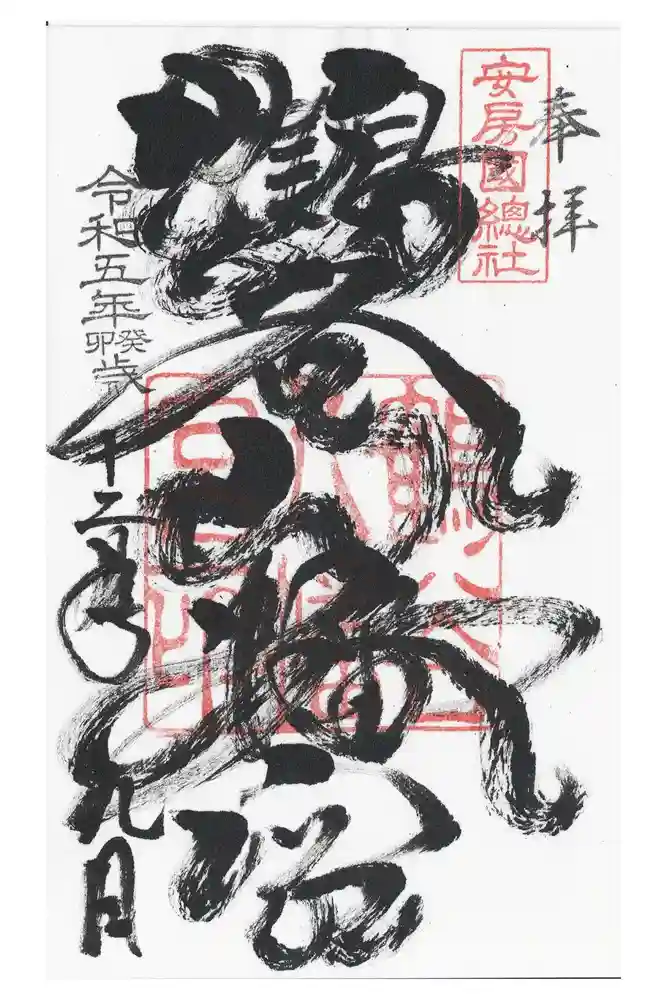 奉拝
安房國總社
鶴谷八幡宮
鶴谷八幡宮印
令和五年癸卯歳十二月九日